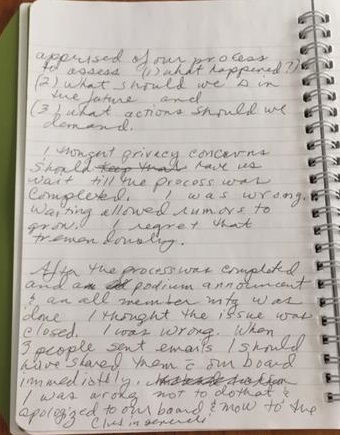 apprised of our process
to assess (1) what happened?
(2) what should we Δ in
the future and
(3) what actions should we
demand.
I thought privacy concerns
should have us
wait till the process was
completed. I was wrong.
Waiting allowed rumors to
grow. I regret that
tremendously.
After the process was completed
and a podium announcement
& an all member mtg was
done I thought the issue was
closed. I was wrong. When
people sent emails I should
have shared them c̄ our board
immediatly.
I was wrong not to do that &
apologized to our board & now to the
Club in general